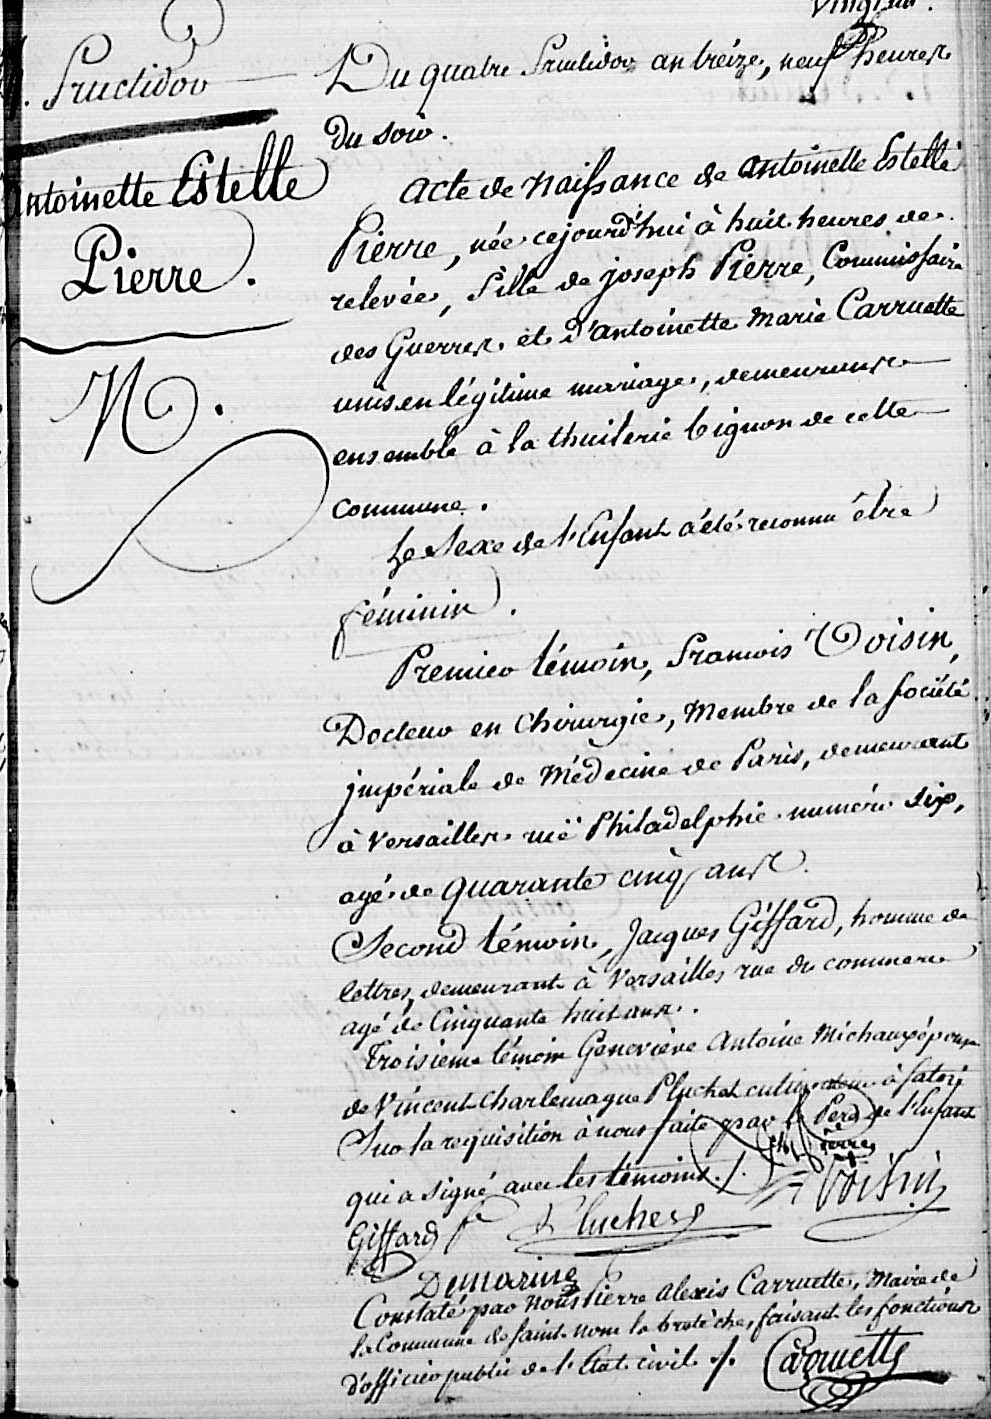 4. Fructidor
Antoinette Estelle
Pierre.
N.
Du quatre Fructidor an treize, neuf heures
du soir.
acte de Naissance de Antoinette Estelle
Pierre, née cejourd'hui à huit heures de
relevée, fille de joseph Pierre, Commissaire
des Guerres et d'antoinette Marie Carruette
unis en légitime mariage, demeurans
ensemble à la thuilerie bignon de cette
commune.
Le Sexe de l'Enfant a été reconnu être
féminin.
Premier témoin, François Voisin,
Docteur en Chirurgie, Membre de la société
impériale de Médecine de Paris, demeurant
à Versailles rue Philadelphie numéro six,
agé de quarante cinq ans.
Second témoin, Jacques Giffard, homme de
lettres, demeurant à Versailles rue du commerce
agé de Cinquante huit ans.
Troisieme témoin Geneviève Antoine Michaux épouse
de Vincent Charlemagne Pluchet cultivateur à Satori
Sur la requisition à nous faite par le Père de l'Enfant
qui a signé avec les témoins ./.
Pierre
Voisin
Giffard
Pluchet
Demarine
Constaté par nous Pierre Alexis Carruette, Maire de
la Commune de Saint nom la bretèche, faisant les fonctions
d'officier public de l'Etat civil ./.
Carruette